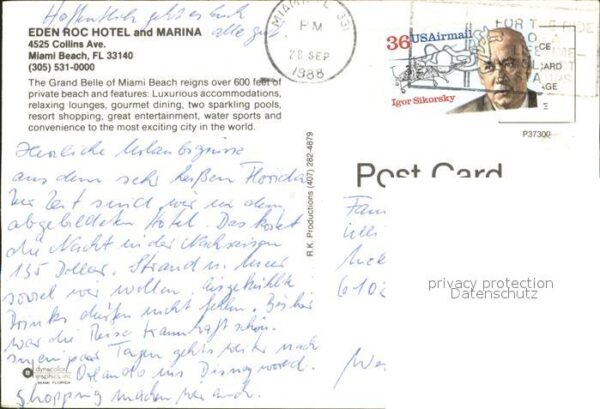 Hoffentlich geht es Euch
allen gut.
EDEN ROC HOTEL and MARINA
4525 Collins Ave.
Miami Beach, FL 33140
(305) 531-0000
The Grand Belle of Miami Beach reigns over 600 feet of
private beach and features: Luxurious accommodations,
relaxing lounges, gourmet dining, two sparkling pools,
resort shopping, great entertainment, water sports and
convenience to the most exciting city in the world.
MIAMI, FL 331
PM
28 SEP
1988
36 USAirmail
Igor Sikorsky
FOR THE
CE
CARD
AGE
P37300
Post Card
R.K. Productions (407) 282-4879
Herzliche Urlaubsgrüsse
aus dem sehr heißen Florida
Zur Zeit sind wir in dem
abgebildeten Hotel. Das kostet
die Nacht in der Nachsaison
135 Dollar. Strand u. Meer
soviel wir wollen. Eisgekühlte
Drinks dürfen nicht fehlen. Bisher
war die Reise traumhaft schön.
In ein paar Tagen geht's weiter nach
Orlando ins Disneyworld.
Shopping machen wir auch.
Fam
6102
privacy protection
Datenschutz
dynacolor
graphics, inc.
MIAMI, FLORIDA